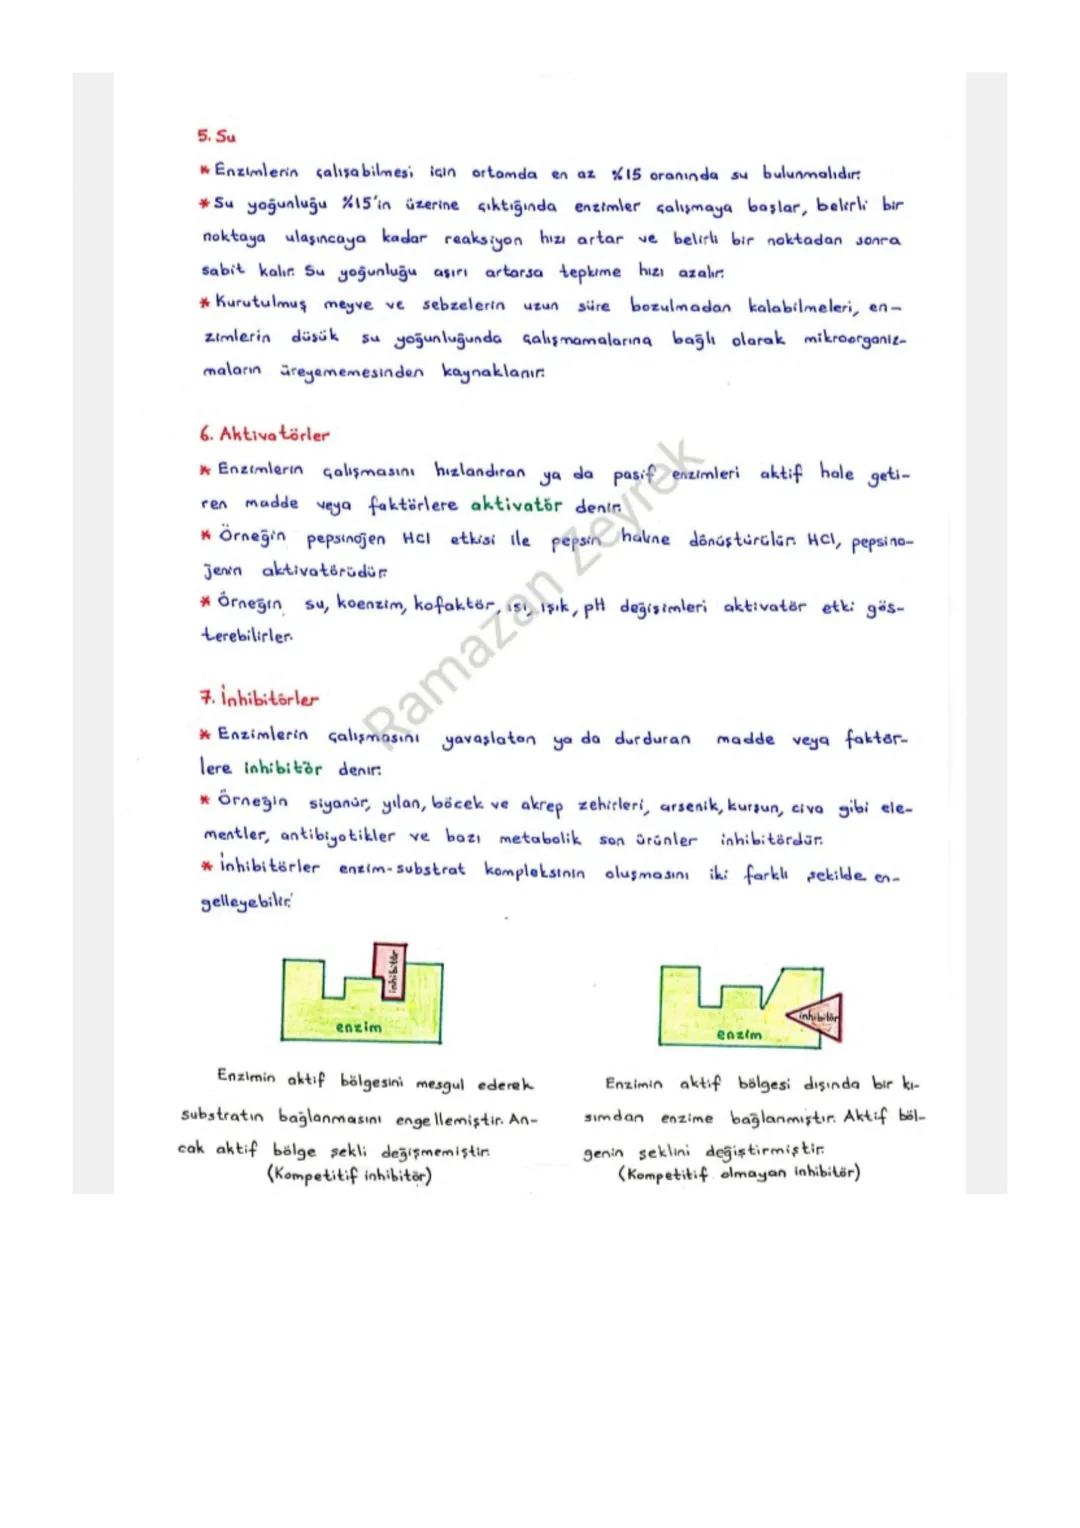 5. Su
* Enzimlerin çalışabilmesi için ortamda en az %15 oranında su bulunmalıdır.
* Su yoğunluğu %15'in üzerine çıktığında enzimler çalışmaya başlar, belirli bir
noktaya ulaşıncaya kadar reaksiyon hızı artar ve belirli bir noktadan sonra
sabit kalır. Su yoğunluğu aşırı artarsa tepkime hızı azalır.
* Kurutulmuş meyve ve sebzelerin uzun süre bozulmadan kalabilmeleri, en-
zimlerin düşük su yoğunluğunda çalışmamalarına bağlı olarak mikroorganiz-
maların üreyememesinden kaynaklanır.
6. Aktivatörler
* Enzimlerin çalışmasını hızlandıran ya da pasif enzimleri aktif hale geti-
ren madde veya faktörlere aktivatör denir.
* Örneğin pepsinojen HCl etkisi ile pepsin haline dönüştürülür. HCl, pepsino-
jenin aktivatörüdür.
* Örneğin su, koenzim, kofaktör, ısı, ışık, pH değişimleri aktivatör etki gös-
terebilirler.
Ramazan Zeyrek
7. İnhibitörler
* Enzimlerin çalışmasını yavaşlatan ya da durduran madde veya faktör-
lere inhibitör denir.
* Örneğin siyanür, yılan, böcek ve akrep zehirleri, arsenik, kurşun, civa gibi ele-
mentler, antibiyotikler ve bazı metabolik son ürünler inhibitördür.
* İnhibitörler enzim-substrat kompleksinin oluşmasını iki farklı şekilde en-
gelleyebilir.
inhibitör
enzim
Enzimin aktif bölgesini meşgul ederek
substratın bağlanmasını engellemiştir. An-
cak aktif bölge şekli değişmemiştir.
(Kompetitif inhibitör)
inhibitör
enzim
Enzimin aktif bölgesi dışında bir kı-
sımdan enzime bağlanmıştır. Aktif böl-
genin şeklini değiştirmiştir.
(Kompetitif olmayan inhibitör)